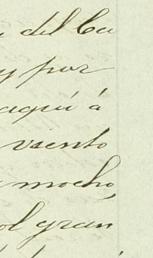 del Ca
y por
aquí á
viento
mocho,
ol gran